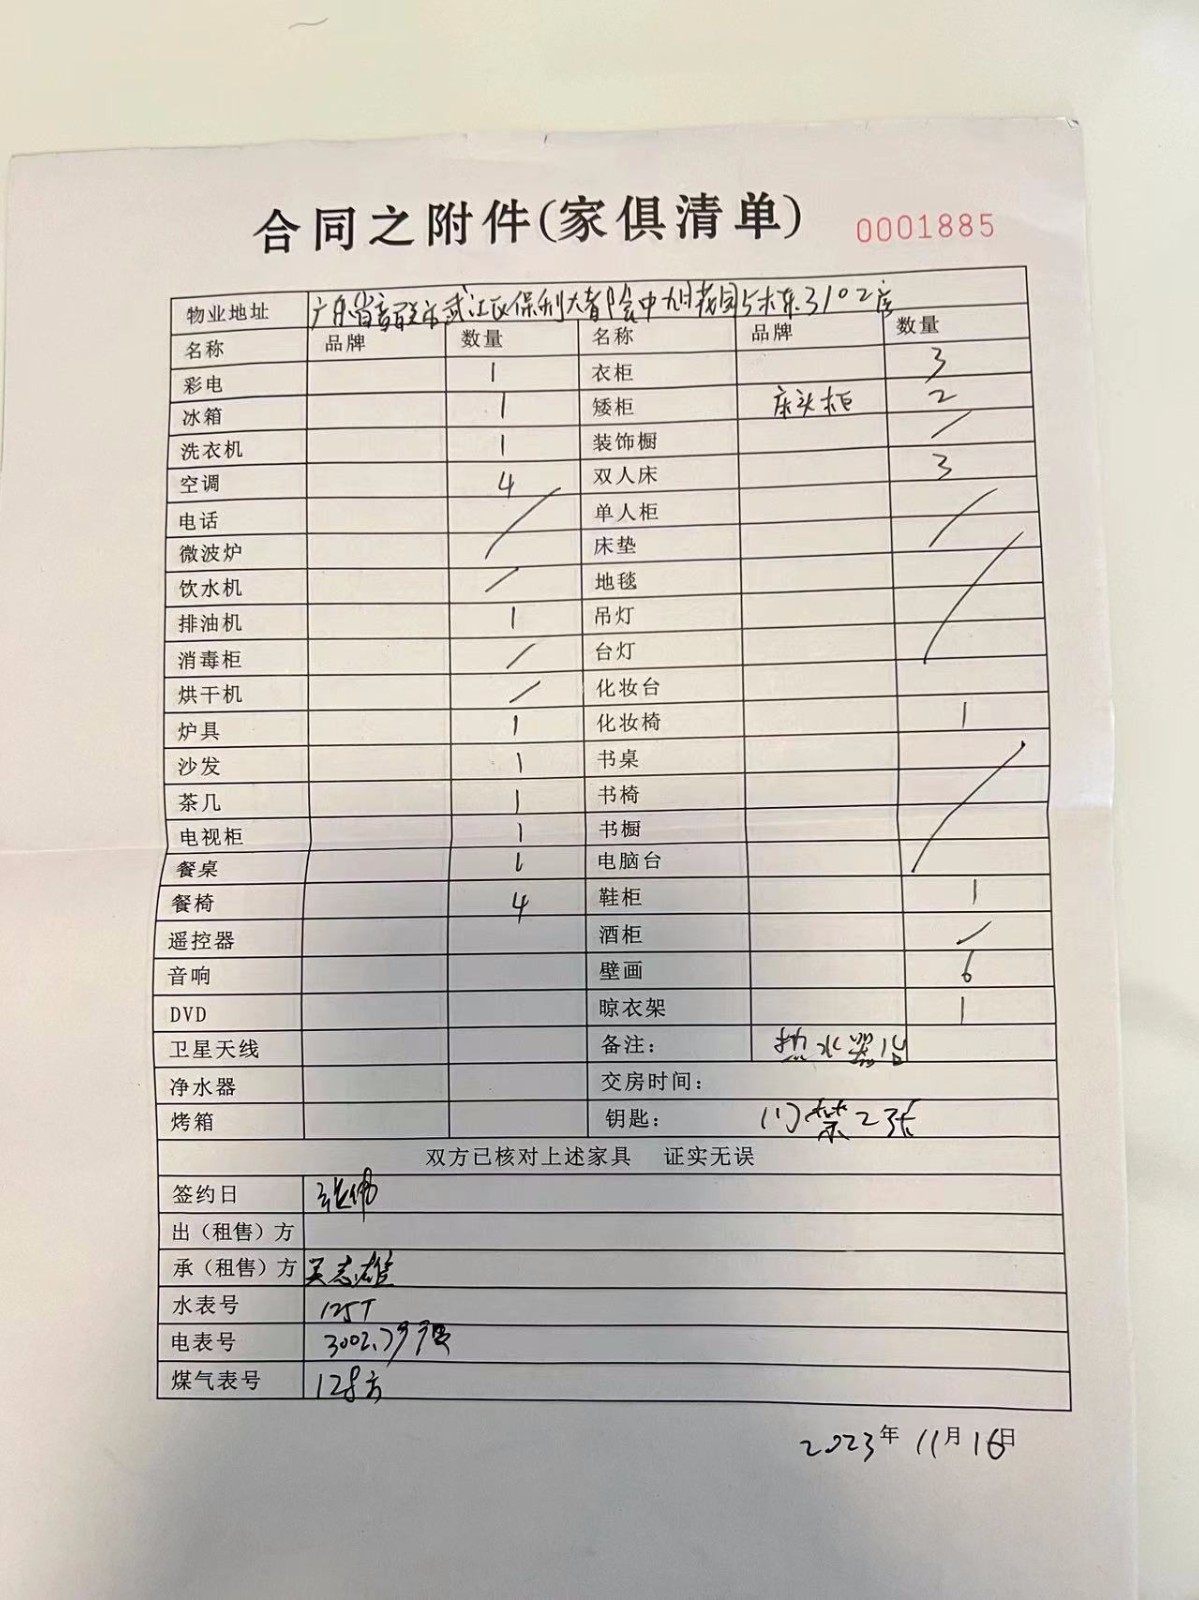 合同之附件(家俱清单) 0001885
物业地址 广东省韶关市武江区保利大都会中旭花园5栋3102房
名称 品牌 数量 名称 品牌 数量
彩电 1 衣柜 3
冰箱 1 矮柜 床头柜 2
洗衣机 1 装饰橱 /
空调 4 双人床 3
电话 单人柜
微波炉 / 床垫 /
饮水机 / 地毯
排油机 1 吊灯
消毒柜 / 台灯 /
烘干机 / 化妆台
炉具 1 化妆椅 1
沙发 1 书桌
茶几 1 书椅
电视柜 1 书橱
餐桌 1 电脑台 /
餐椅 4 鞋柜 1
遥控器 酒柜 /
音响 壁画 6
DVD 晾衣架 1
卫星天线 备注: 热水器1台
净水器 交房时间:
烤箱 钥匙: 门禁2张
双方已核对上述家具 证实无误
签约日 张伟
出（租售）方
承（租售）方 吴志雄
水表号 125T
电表号 3002.79
煤气表号 128方
2023年11月16日